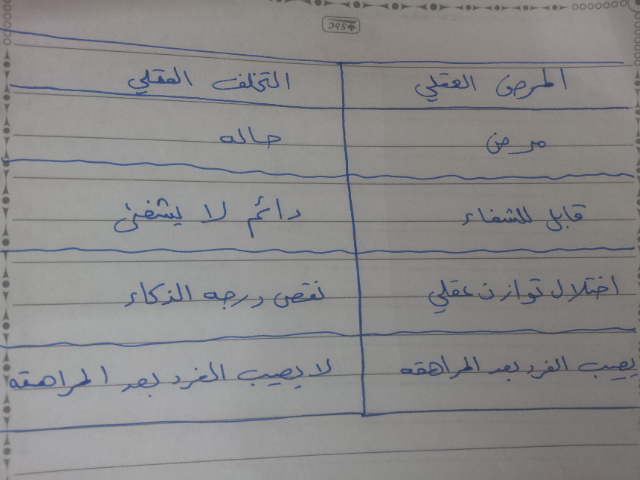 المرض العقلي	التخلف العقلي
مرض	حاله
قابل للشفاء	دائم لا يشفئ
اختلال توازن عقلي	نقص درجه الذكاء
يصيب الفرد بعد المراهقه	لا يصيب الفرد بعد المراهقه